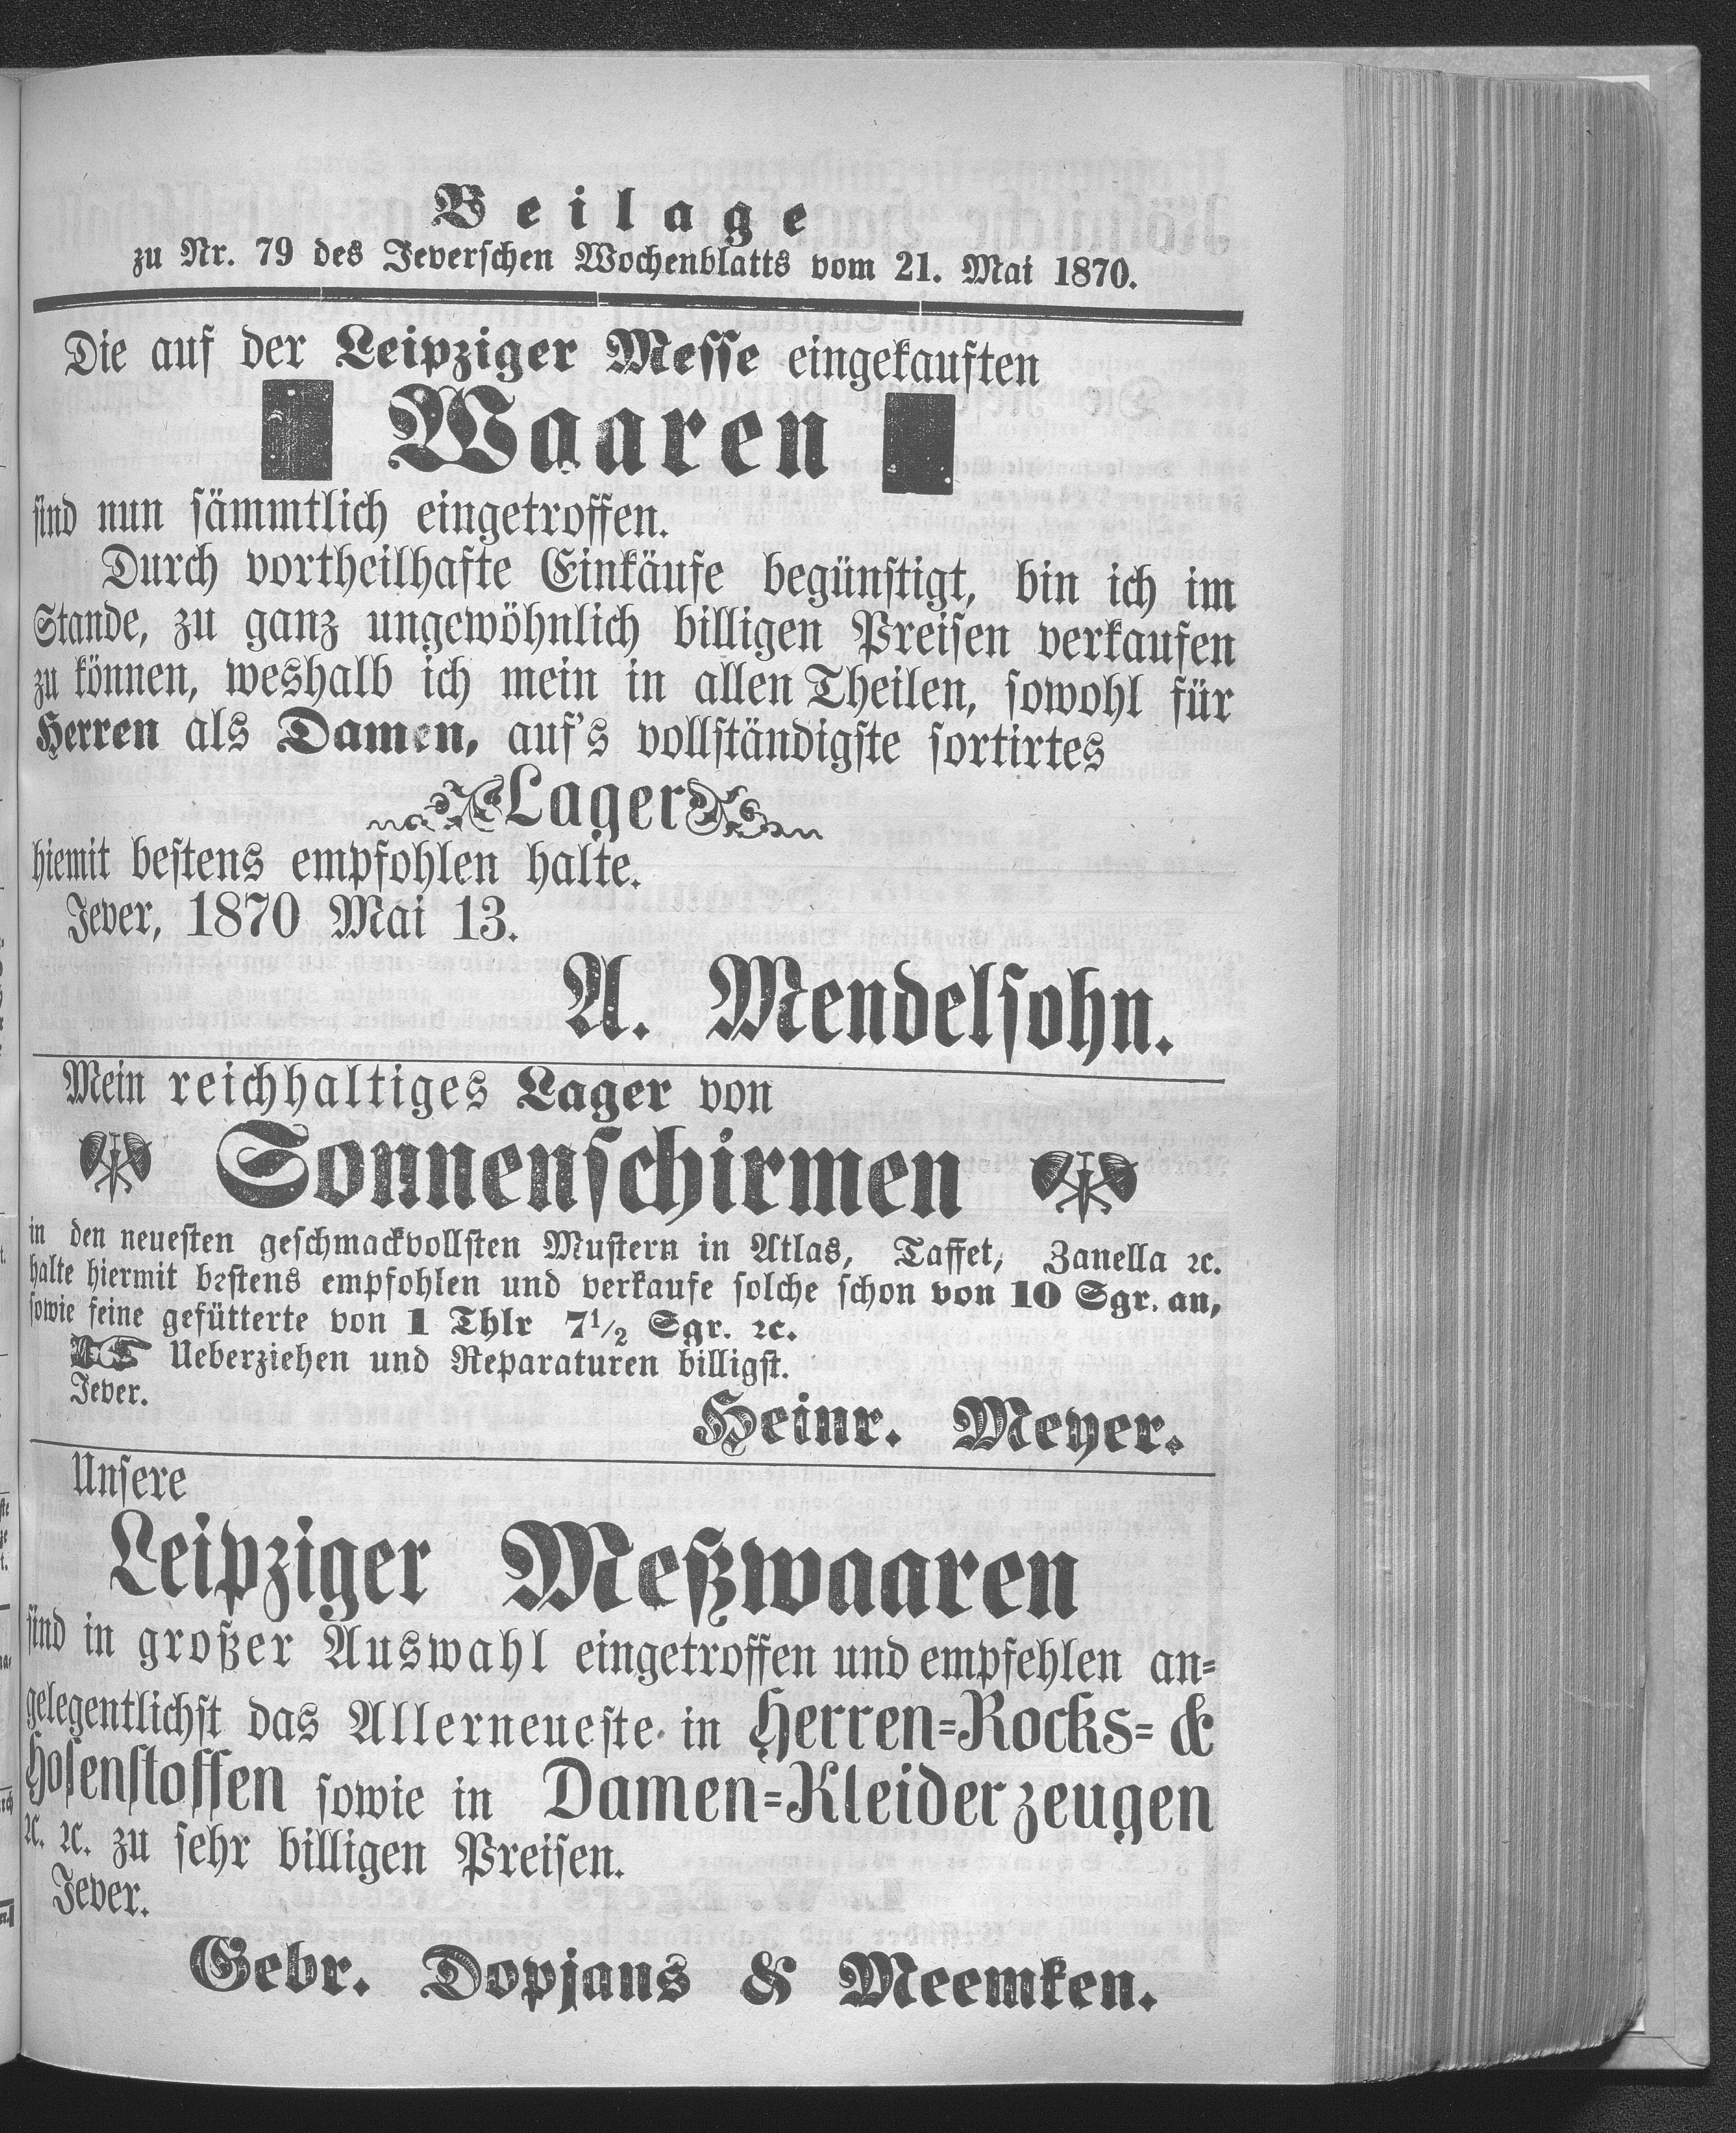 Beilage
zu Nr. 79 des Jeverschen Wochenblatts vom 21. Mai 1870.
Die auf der Leipziger Messe eingekauften
Waaren
sind nun sämmtlich eingetroffen.
Durch vortheilhafte Einkäufe begünstigt, bin ich im
Stande, zu ganz ungewöhnlich billigen Preisen verkaufen
zu können, weshalb ich mein in allen Theilen, sowohl für
Herren als Damen, auf's vollständigste sortirtes
Lager
hiemit bestens empfohlen halte.
Jever, 1870 Mai 13.
A. Mendelsohn.
Mein reichhaltiges Lager von
Sonnenschirmen
in den neuesten geschmackvollsten Mustern in Atlas, Taffet, Zanella ꝛc.
halte hiermit bestens empfohlen und verkaufe solche schon von 10 Sgr. an,
sowie feine gefütterte von 1 Thlr 7½ Sgr. ꝛc.
Ueberziehen und Reparaturen billigst.
Jever.
Heinr. Meyer.
Unsere
Leipziger Meßwaaren
sind in großer Auswahl eingetroffen und empfehlen an-
gelegentlichst das Allerneueste in Herren-Rocks- &
Hosenstoffen sowie in Damen-Kleiderzeugen
ꝛc. ꝛc. zu sehr billigen Preisen.
Jever.
Gebr. Dopjans & Meemken.